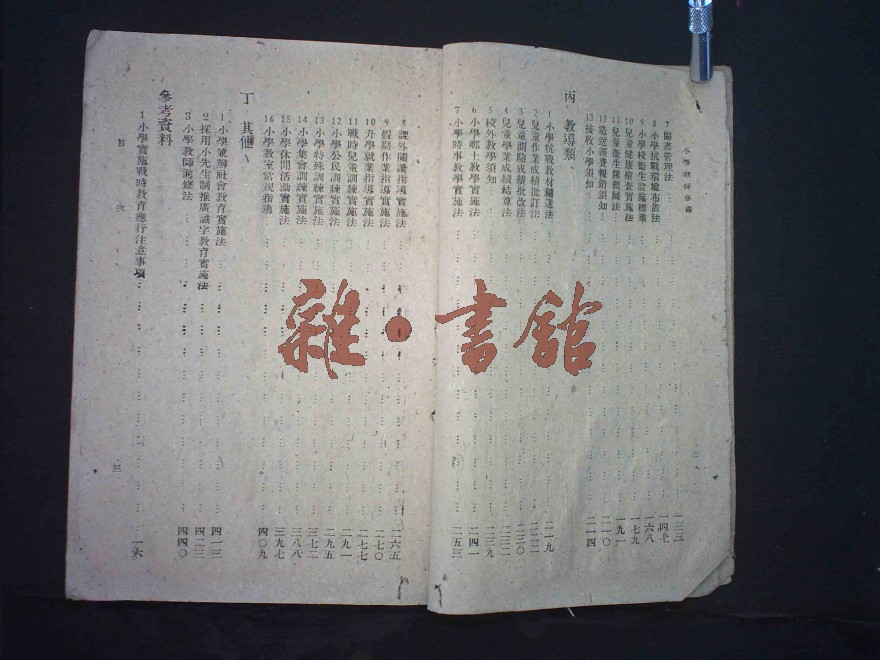 小學教師手冊
7 圖書管理法 … 一三三
8 小學抗戰環境布置法 … 一四七
9 小學校衞生設施標準 … 一六八
10 兒童健康檢查實施法 … 一七九
11 兒童衞生隊組織法 … 一九一
12 造送辦費報銷須知 … 二一〇
13 接收小學須知 … 二一四
丙 教導類
1 小學抗戰教材補選法 … 二一九
2 兒童作業成績批訂法 … 二二二
3 兒童測驗成績批改法 … 二三〇
4 兒童學業成績結算法 … 二三二
5 校外教學須知 … 二三九
6 小學鄉土教學實施法 … 二四一
7 小學時事教學實施法 … 二五三
8 課外閱讀指導實施法 … 二六五
9 假期作業指導實施法 … 二七〇
10 升學就業指導實施法 … 二七七
11 戰時兒童訓練實施法 … 二九一
12 小學公民訓練實施法 … 二九五
13 小學特殊訓練實施法 … 三七二
14 小學集會訓練實施法 … 三八八
15 小學休閒活動實施法 … 三九七
16 小學教室常規指導 … 四〇九
丁 其他
1 小學兼辦社會教育實施法 … 四一三
2 採用小先生制推廣識字教育實施法 … 四二三
3 小學教師進修法 … 四四〇
參考資料
1 小學實施戰時教育應行注意事項 … 二一六
目次
三
雜·書館